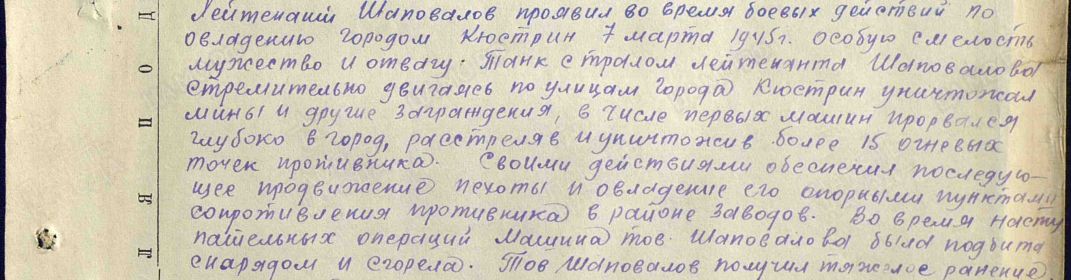 Лейтенант Шаповалов проявил во время боевых действий по
овладению городом Кюстрин 7 марта 1945г. особую смелость
мужество и отвагу. Танк с тралом лейтенанта Шаповалова
стремительно двигаясь по улицам города Кюстрин уничтожал
мины и другие заграждения, в числе первых машин прорвался
глубоко в город, расстреляв и уничтожив более 15 огневых
точек противника. Своими действиями обеспечил последую-
щее продвижение пехоты и овладение его опорными пунктами
сопротивления противника в районе заводов. Во время насту
пательных операций машина тов. Шаповалова была подбита
снарядом и сгорела. Тов Шаповалов получил тяжелое ранение.